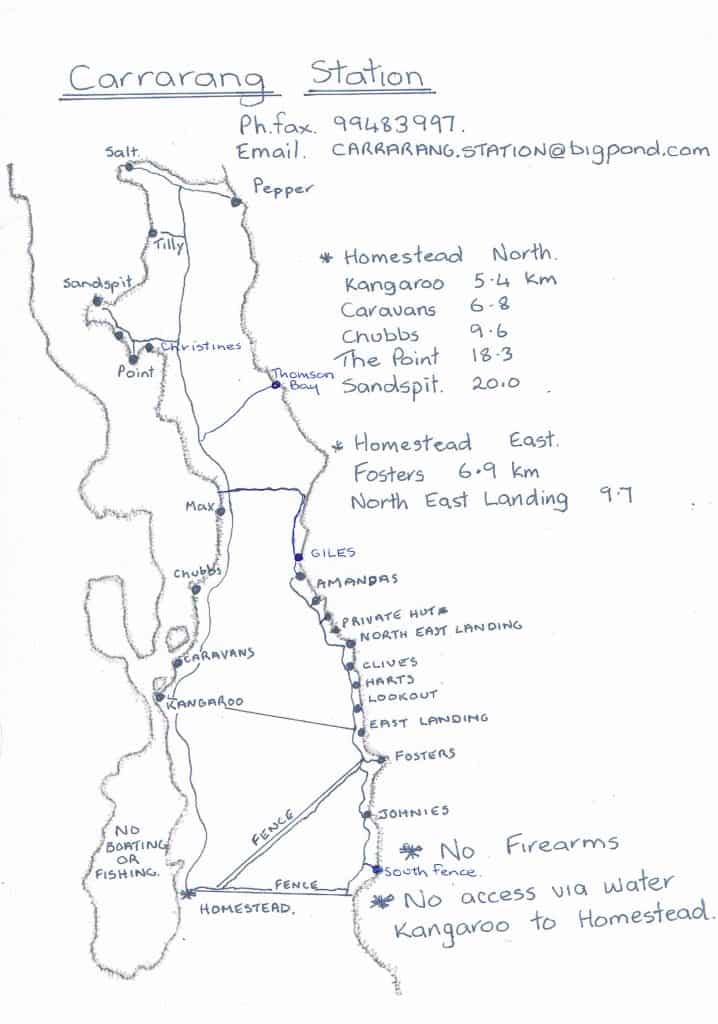 Carrarang Station
Ph.fax. 99483997.
Email. CARRARANG.STATION@bigpond.com
Salt.
Pepper
Tilly
Sandspit.
Christines
Point
Thomson
Bay
* Homestead North.
Kangaroo 5.4 km
Caravans 6.8
Chubbs 9.6
The Point 18.3
Sandspit. 20.0
* Homestead East.
Fosters 6.9 km
North East Landing 9.7
Max
GILES
Chubbs
AMANDAS
PRIVATE HUT*
NORTH EAST LANDING
CARAVANS
CLIVES
HARTS
KANGAROO
LOOKOUT
EAST LANDING
FOSTERS
FENCE
JOHNIES
NO
BOATING
OR
FISHING.
* No Firearms
South Fence.
FENCE
HOMESTEAD.
* No access via water
Kangaroo to Homestead.